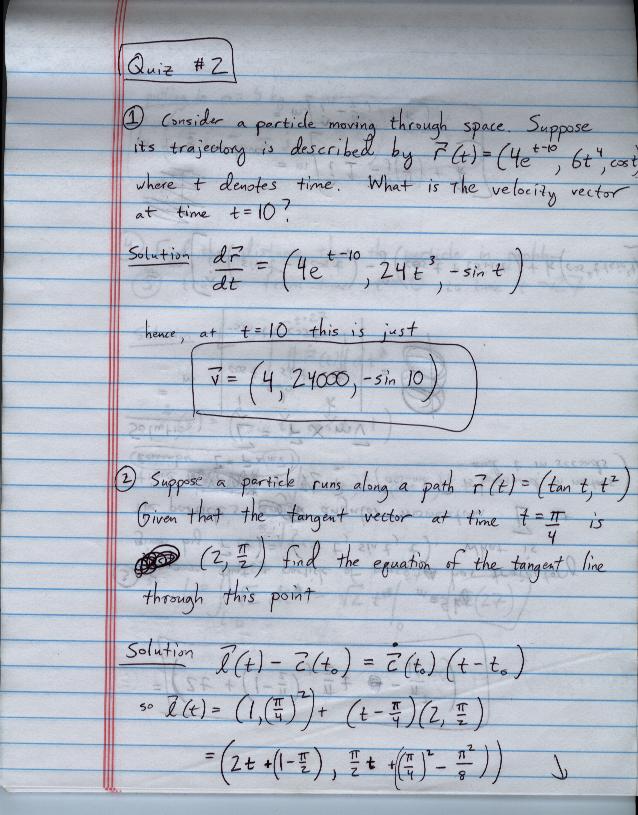 Quiz #2
① Consider a particle moving through space. Suppose
its trajectory is described by r⃗(t) = (4e^(t-10), 6t⁴, cos t)
where t denotes time. What is the velocity vector
at time t = 10?
Solution dr⃗/dt = (4e^(t-10), 24t³, -sin t)
hence, at t = 10 this is just
v⃗ = (4, 24000, -sin 10)
② Suppose a particle runs along a path r⃗(t) = (tan t, t²)
Given that the tangent vector at time t = π/4 is
(2, π/2) find the equation of the tangent line
through this point
Solution l⃗(t) - c⃗(t₀) = ċ⃗(t₀) (t - t₀)
so l⃗(t) = (1, (π/4)²) + (t - π/4)(2, π/2)
= (2t + (1 - π/2), π/2 t + ((π/4)² - π²/8)) ↓